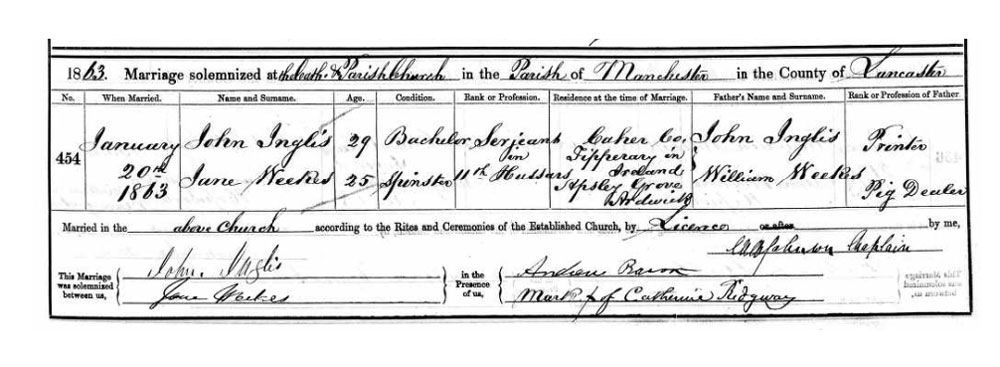 1863. Marriage solemnized at the Cath. & Parish Church in the Parish of Manchester in the County of Lancaster
No. When Married. Name and Surname. Age. Condition. Rank or Profession. Residence at the time of Marriage. Father's Name and Surname. Rank or Profession of Father
454 January 20th 1863 John Inglis 29 Bachelor Serjeant in 11th Hussars Caher Co. Tipperary in Ireland John Inglis Printer
Jane Weekes 25 Spinster Apsley Grove Ardwick William Weekes Pig Dealer
Married in the above Church according to the Rites and Ceremonies of the Established Church, by Licence or after by me,
Johnson Chaplain
This Marriage was solemnized between us, John Inglis in the Presence of us, Andrew
Jane Weekes Mark of Catherine Ridgway